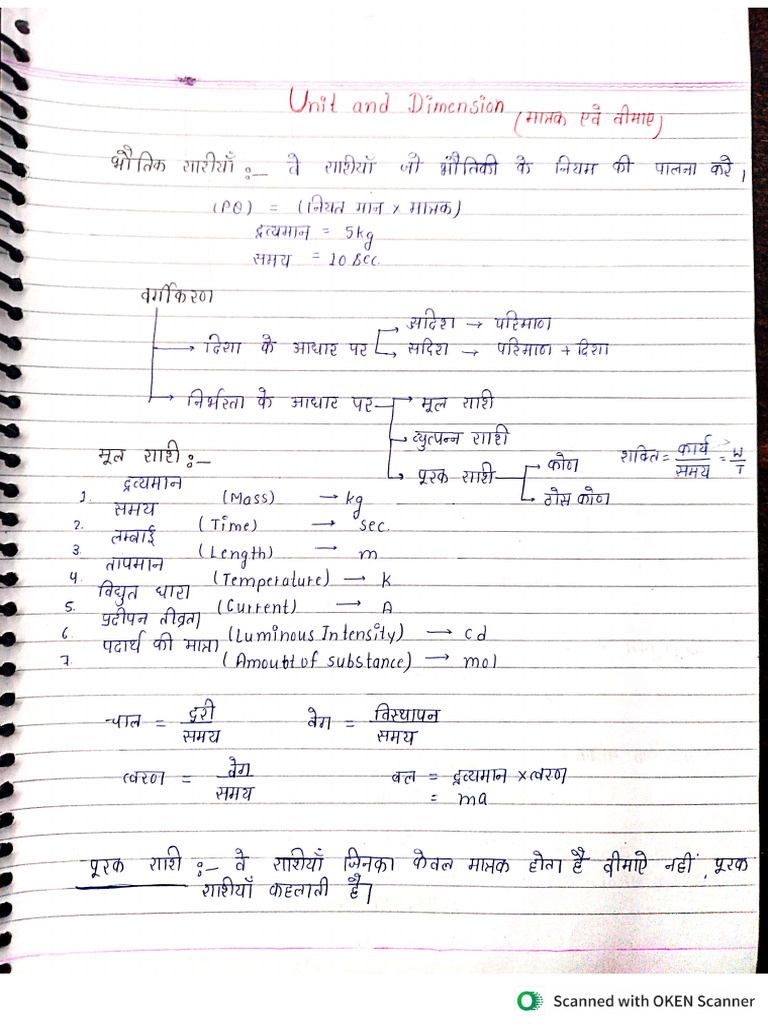 Unit and Dimension (मात्रक एवं वीमाए)
भौतिक राशीयाँ :- वे राशीयाँ जो भौतिकी के नियम की पालना करे।
(PQ) = (नियत मान × मात्रक)
द्रव्यमान = 5kg
समय = 10 Sec.
वर्गीकरण
→ दिशा के आधार पर
अदिश → परिमाण
सदिश → परिमाण + दिशा
→ निर्भरता के आधार पर → मूल राशी
→ व्युत्पन्न राशी
→ पूरक राशी → कोण
→ ठोस कोण
शक्ति = कार्य / समय = W / T
मूल राशी :-
1. द्रव्यमान (Mass) → kg
2. समय (Time) → sec.
3. लम्बाई (Length) → m
4. तापमान (Temperature) → K
5. विद्युत धारा (Current) → A
6. प्रदीपन तीव्रता (Luminous Intensity) → cd
7. पदार्थ की मात्रा (Amount of substance) → mol
चाल = दूरी / समय वेग = विस्थापन / समय
त्वरण = वेग / समय बल = द्रव्यमान × त्वरण
= ma
पूरक राशी :- वे राशियाँ जिनका केवल मात्रक होता है वीमाऐ नहीं, पूरक
राशीयाँ कहलाती है।
Scanned with OKEN Scanner